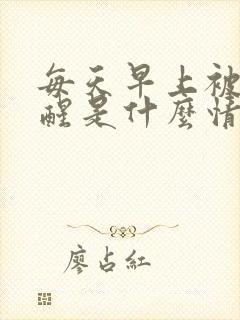 每天早上被
醒是什麼情
廖占紅